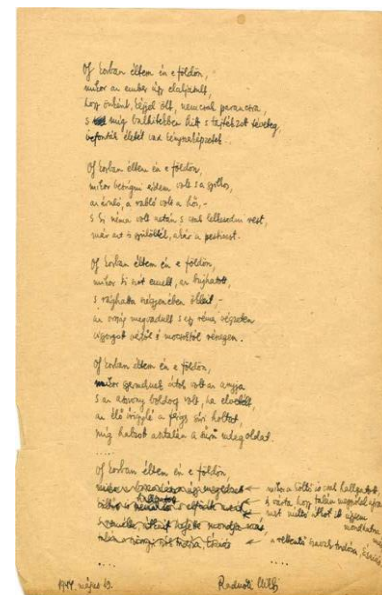 Oly korban éltem én e földön,
mikor az ember úgy elaljasult,
hogy önként, kéjjel ölt, nemcsak parancsra,
s míg balhitekben hitt s tajtékzott téveteg,
befonták életét vad kényszerképzetek.
Oly korban éltem én e földön,
mikor besúgni érdem volt s a gyilkos,
az áruló, a rabló volt a hős, -
s ki néma volt netán s csak lelkesedni rest,
már azt is gyűlölték, akár a pestisest.
Oly korban éltem én e földön,
mikor ki szót emelt, az bujhatott,
s rághatta szégyenében ökleit, -
az ország megvadult s egy rémes végzeten
vigyorgott vértől s mocsoktól részegen.
Oly korban éltem én e földön,
mikor gyermeknek átok volt az anyja,
s az asszony boldog volt, ha elvetélt,
az élő irigylé a férges síri holtat,
míg habzott asztalán a sűrű méregoldat.
.....
Oly korban éltem én e földön,
mikor a költő is csak hallgatott,
s várta, hogy talán megszólal ujra
mert méltó átkot itt úgysem mondhatna
a rettentő szavak tudósa,
.....
1944. május 19.
Radnóti Miklós